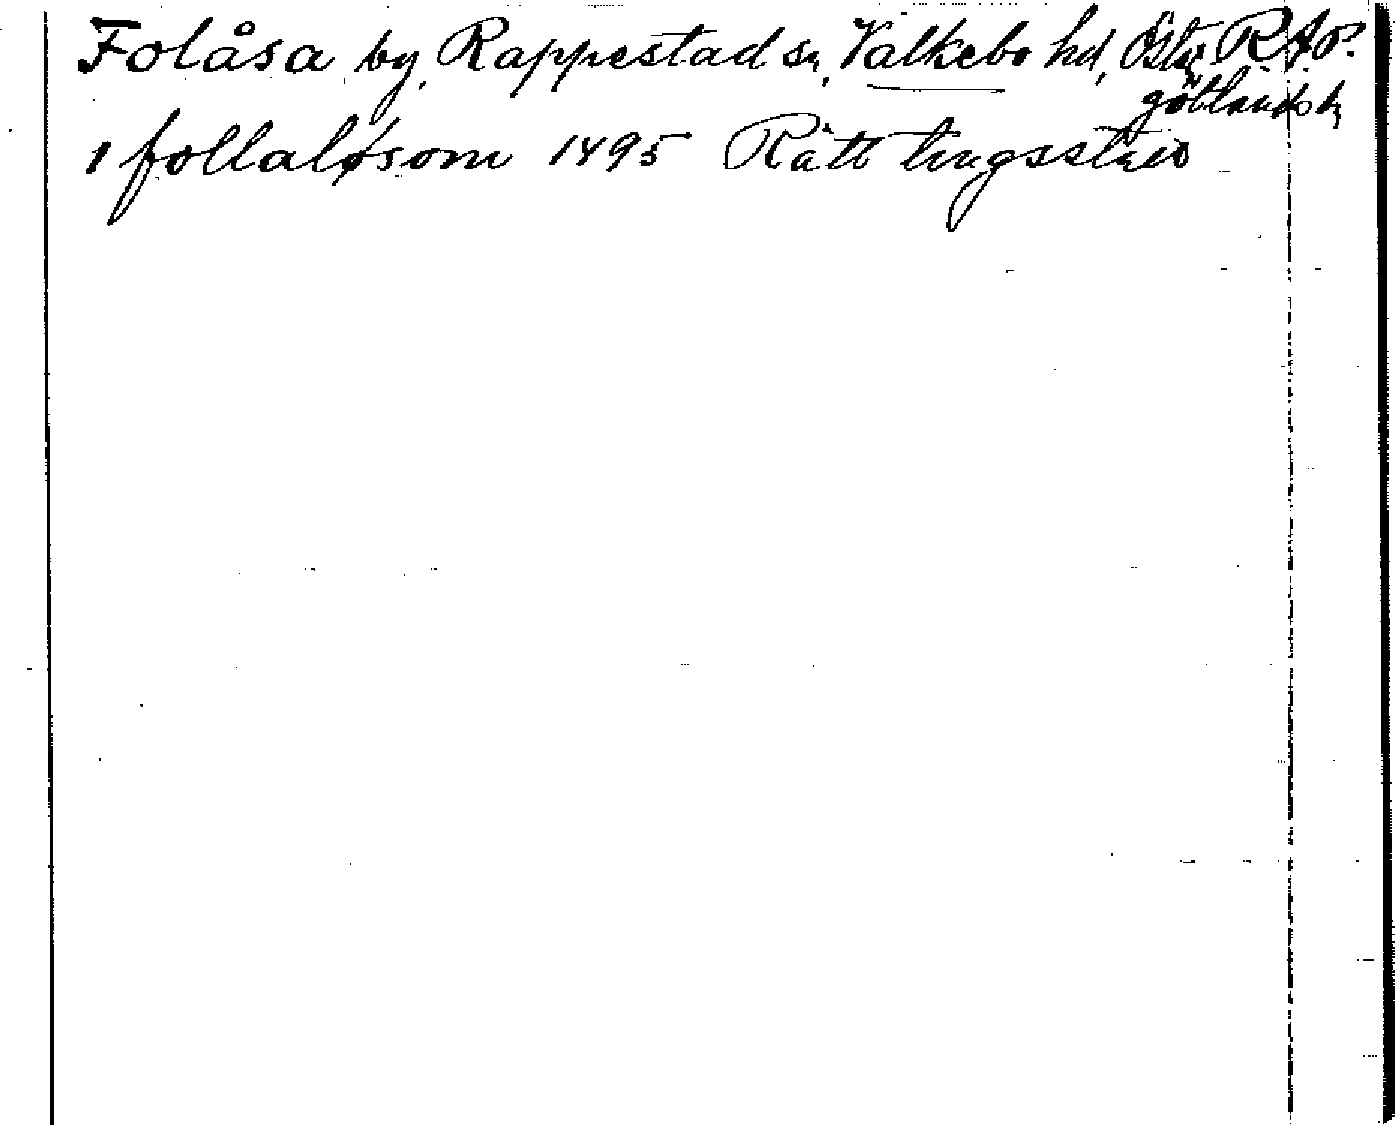 Folåsa by, Rappestad sn, Valkebo hd, Öster RAp?
götlands l,
i follaløsom 1495 Rätt tingsställe